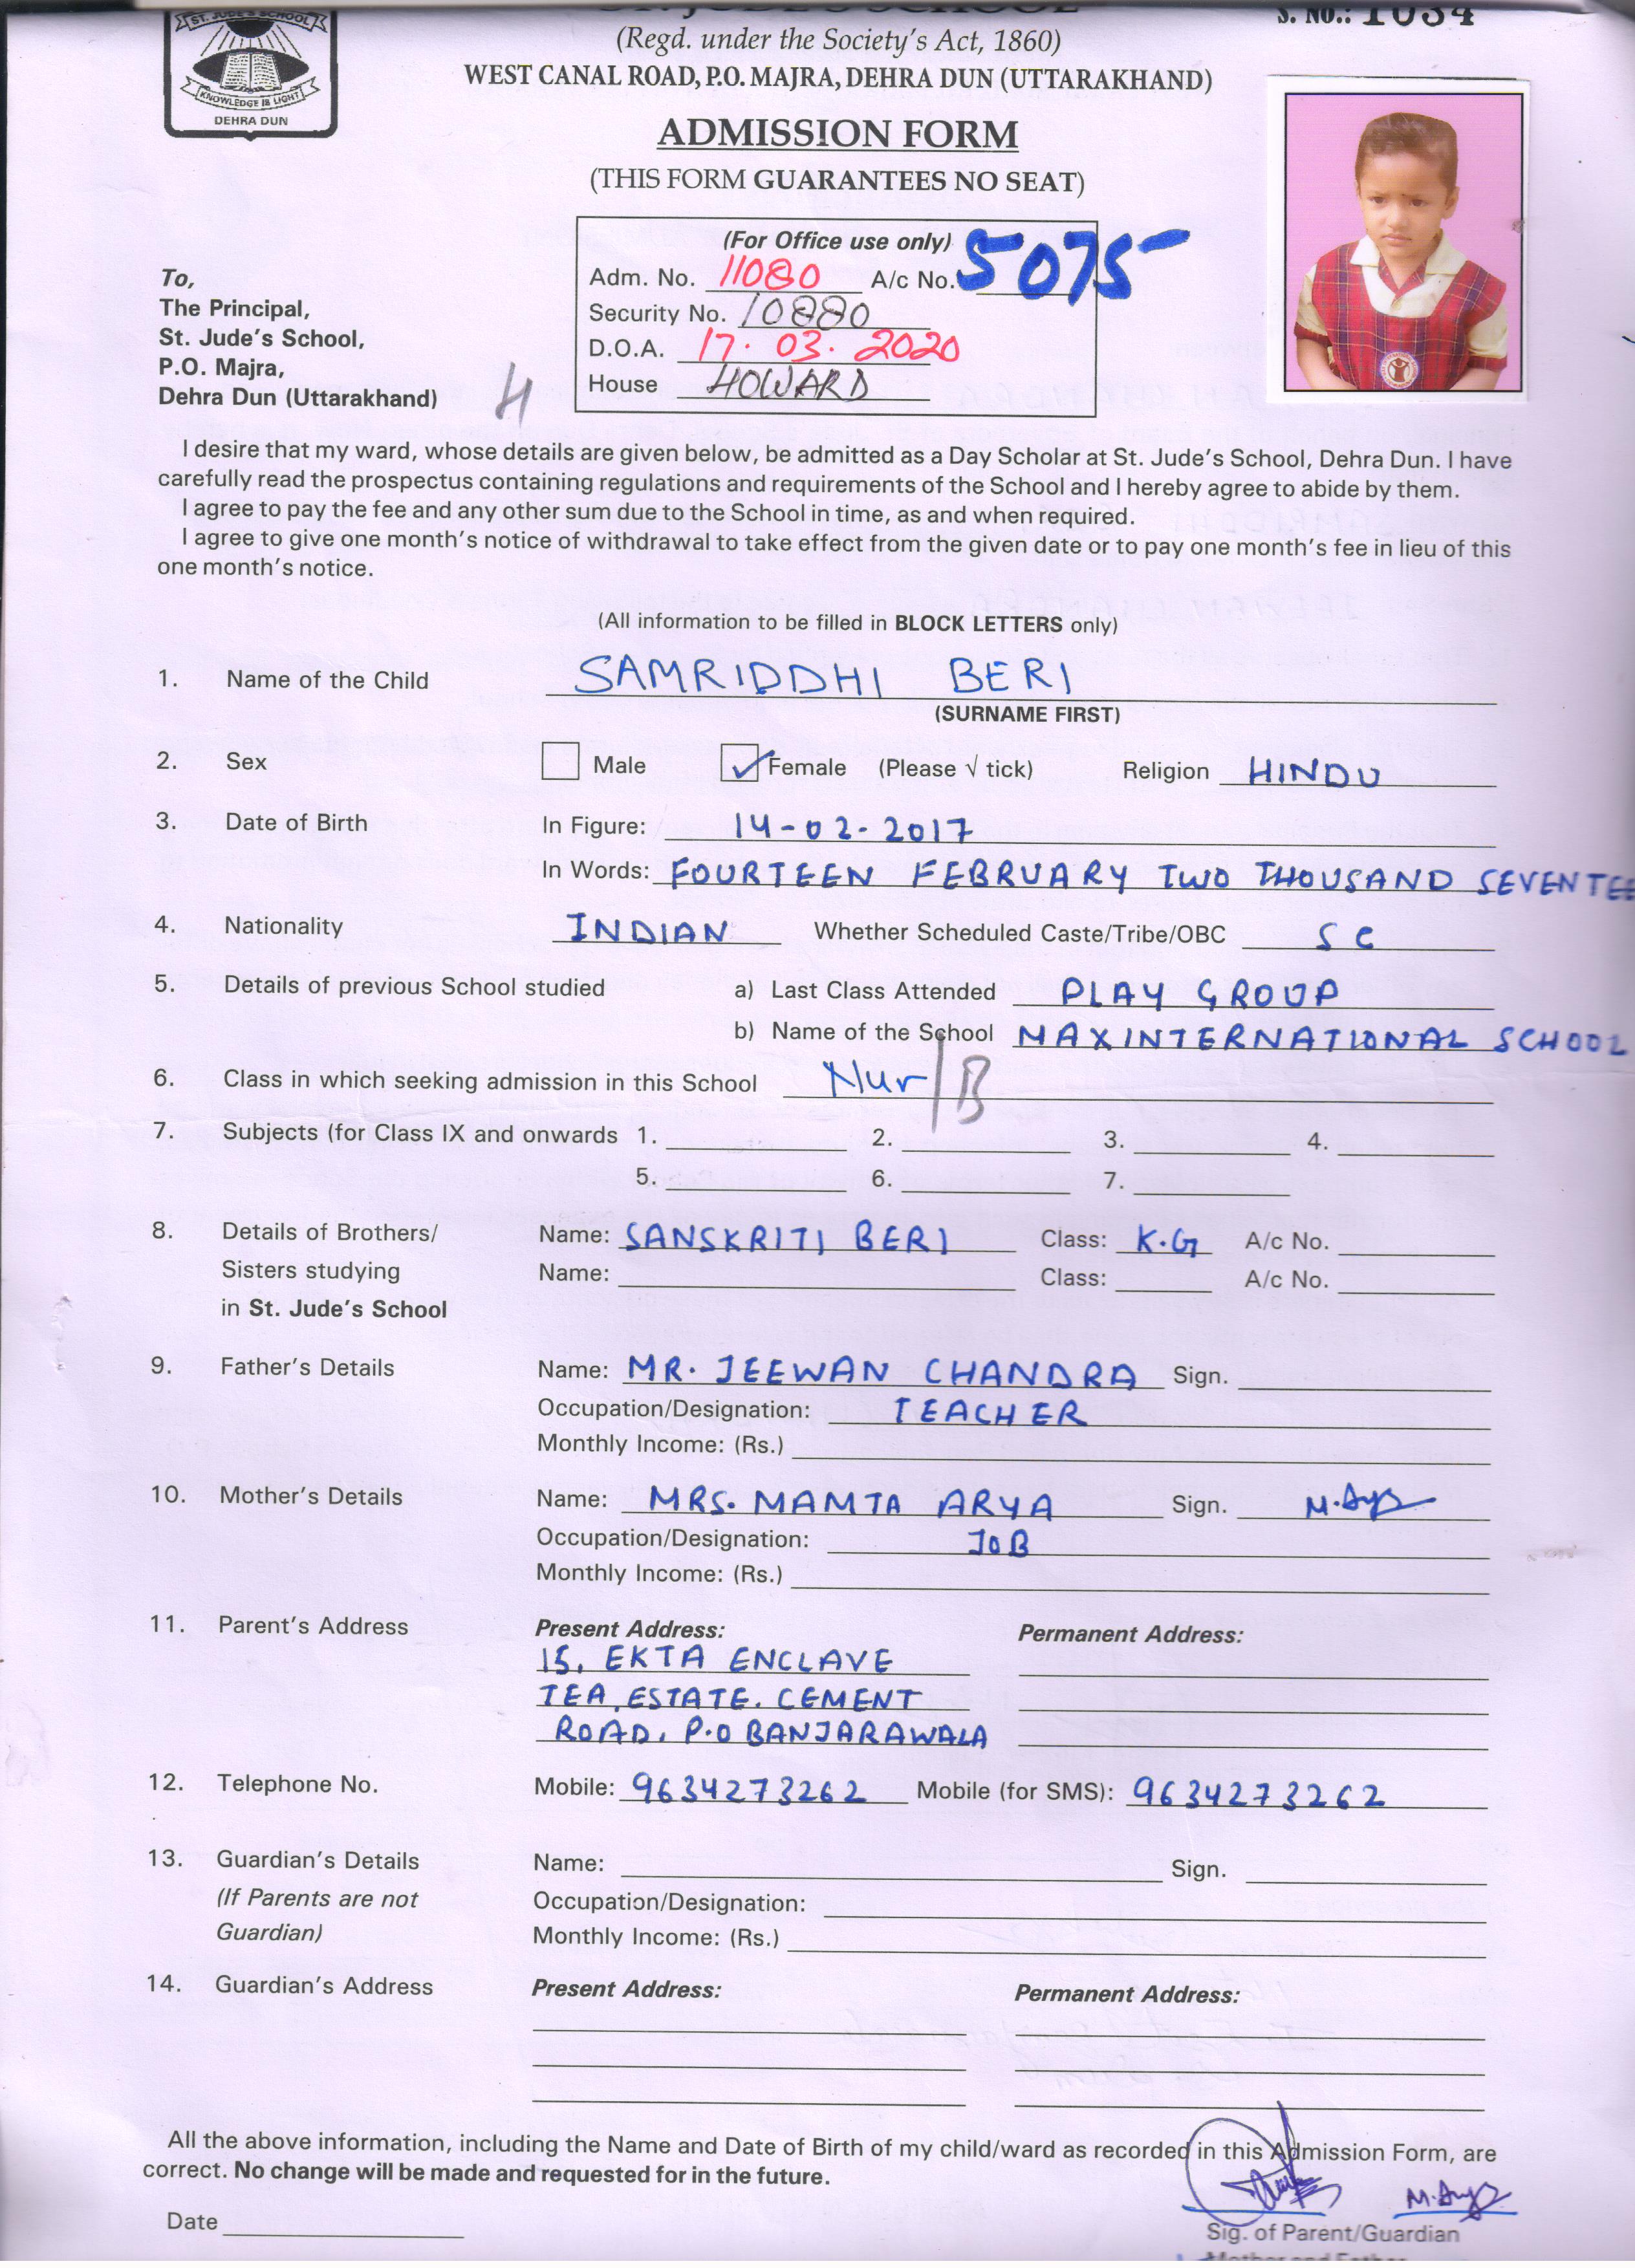 ST. JUDE'S SCHOOL
S. No.: 1034
ST. JUDE'S SCHOOL
KNOWLEDGE IS LIGHT
DEHRA DUN
(Regd. under the Society's Act, 1860)
WEST CANAL ROAD, P.O. MAJRA, DEHRA DUN (UTTARAKHAND)
ADMISSION FORM
(THIS FORM GUARANTEES NO SEAT)
(For Office use only)
Adm. No. 11080 A/c No. 5075
Security No. 10880
D.O.A. 17.03.2020
House HOWARD
To,
The Principal,
St. Jude's School,
P.O. Majra,
Dehra Dun (Uttarakhand)
H
I desire that my ward, whose details are given below, be admitted as a Day Scholar at St. Jude's School, Dehra Dun. I have
carefully read the prospectus containing regulations and requirements of the School and I hereby agree to abide by them.
I agree to pay the fee and any other sum due to the School in time, as and when required.
I agree to give one month's notice of withdrawal to take effect from the given date or to pay one month's fee in lieu of this
one month's notice.
(All information to be filled in BLOCK LETTERS only)
1. Name of the Child SAMRIDDHI BERI
(SURNAME FIRST)
2. Sex Male ✓ Female (Please √ tick) Religion HINDU
3. Date of Birth In Figure: 14-02-2017
In Words: FOURTEEN FEBRUARY TWO THOUSAND SEVENTEE
4. Nationality INDIAN Whether Scheduled Caste/Tribe/OBC SC
5. Details of previous School studied a) Last Class Attended PLAY GROUP
b) Name of the School MAX INTERNATIONAL SCHOOL
6. Class in which seeking admission in this School Nur/B
7. Subjects (for Class IX and onwards 1. 2. 3. 4.
5. 6. 7.
8. Details of Brothers/ Name: SANSKRITI BERI Class: K.G A/c No.
Sisters studying Name: Class: A/c No.
in St. Jude's School
9. Father's Details Name: MR. JEEWAN CHANDRA Sign.
Occupation/Designation: TEACHER
Monthly Income: (Rs.)
10. Mother's Details Name: MRS. MAMTA ARYA Sign. M.Arya
Occupation/Designation: JOB
Monthly Income: (Rs.)
11. Parent's Address Present Address: Permanent Address:
15, EKTA ENCLAVE
TEA ESTATE. CEMENT
ROAD. P.O BANJARAWALA
12. Telephone No. Mobile: 9634273262 Mobile (for SMS): 9634273262
13. Guardian's Details Name: Sign.
(If Parents are not Occupation/Designation:
Guardian) Monthly Income: (Rs.)
14. Guardian's Address Present Address: Permanent Address:
All the above information, including the Name and Date of Birth of my child/ward as recorded in this Admission Form, are
correct. No change will be made and requested for in the future.
M.Arya
Date
Sig. of Parent/Guardian
Mother and Father